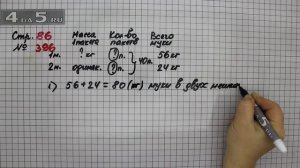 4 DA 5.RU
Стр. 86 Масса 1 пакета Кол-во пакетов Всего муки
№ 396
1м. ? кг ? п. 56 кг
40п.
2м. одинак. ? п. 24 кг
1) 56 + 24 = 80 (кг) муки в двух